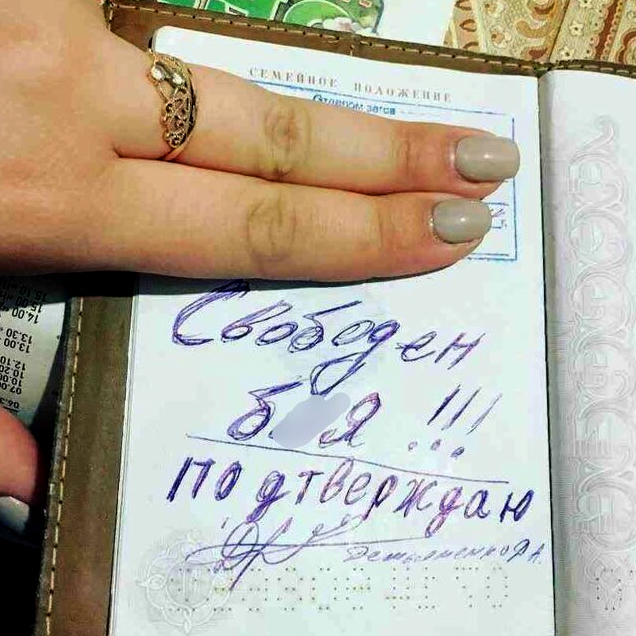 СЕМЕЙНОЕ ПОЛОЖЕНИЕ
Отделом загса
Свободен
б. я !!!
подтверждаю
14.00
13.30
13.00
12.10
10.20
10.00
07.00